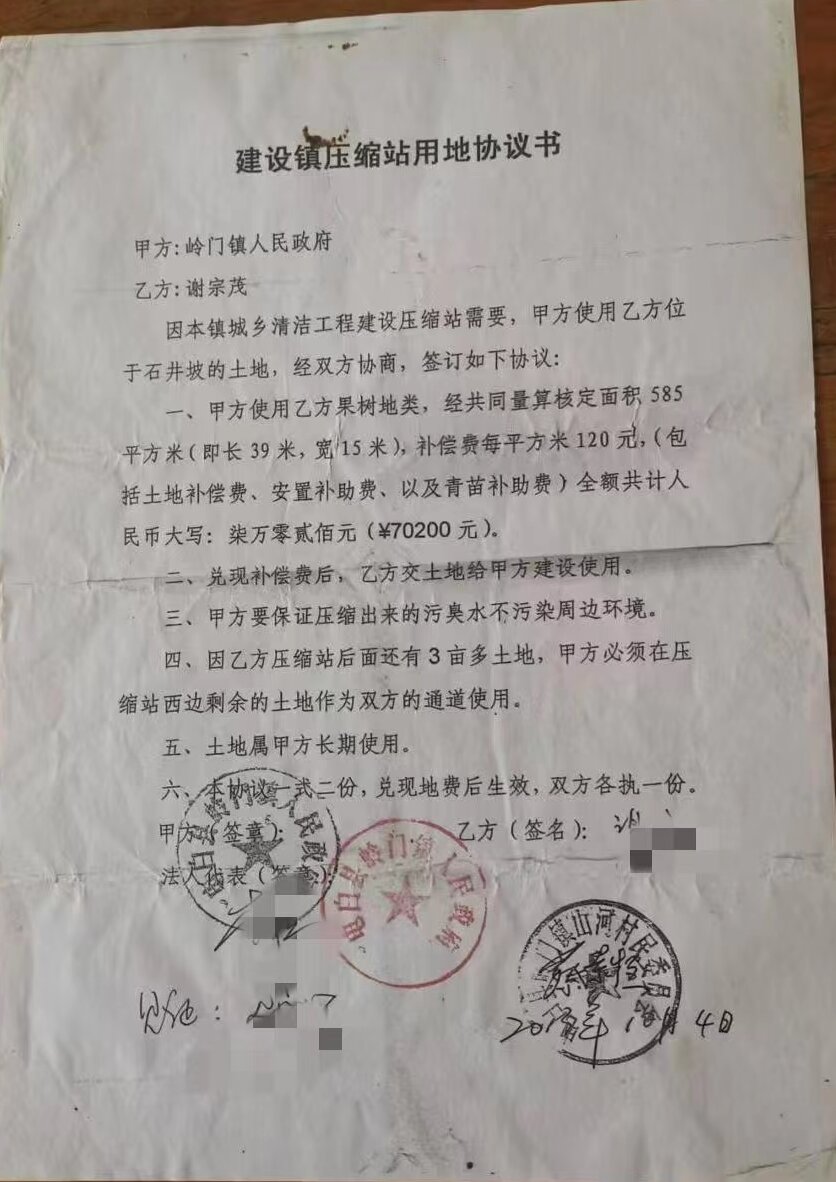 建设镇压缩站用地协议书
甲方:岭门镇人民政府
乙方:谢宗茂
因本镇城乡清洁工程建设压缩站需要，甲方使用乙方位
于石井坡的土地，经双方协商，签订如下协议：
一、甲方使用乙方果树地类，经共同量算核定面积 585
平方米(即长 39 米，宽 15 米)，补偿费每平方米 120 元，(包
括土地补偿费、安置补助费、以及青苗补助费)全额共计人
民币大写：柒万零贰佰元(¥70200 元)。
二、兑现补偿费后，乙方交土地给甲方建设使用。
三、甲方要保证压缩出来的污臭水不污染周边环境。
四、因乙方压缩站后面还有 3 亩多土地，甲方必须在压
缩站西边剩余的土地作为双方的通道使用。
五、土地属甲方长期使用。
六、本协议一式二份，兑现地费后生效，双方各执一份。
甲方(签章)：
乙方(签名)：
法人代表(签章)
电白县岭门镇人民政府
电白县岭门镇人民政府
门镇山河村民委员会
见证：
月 4日